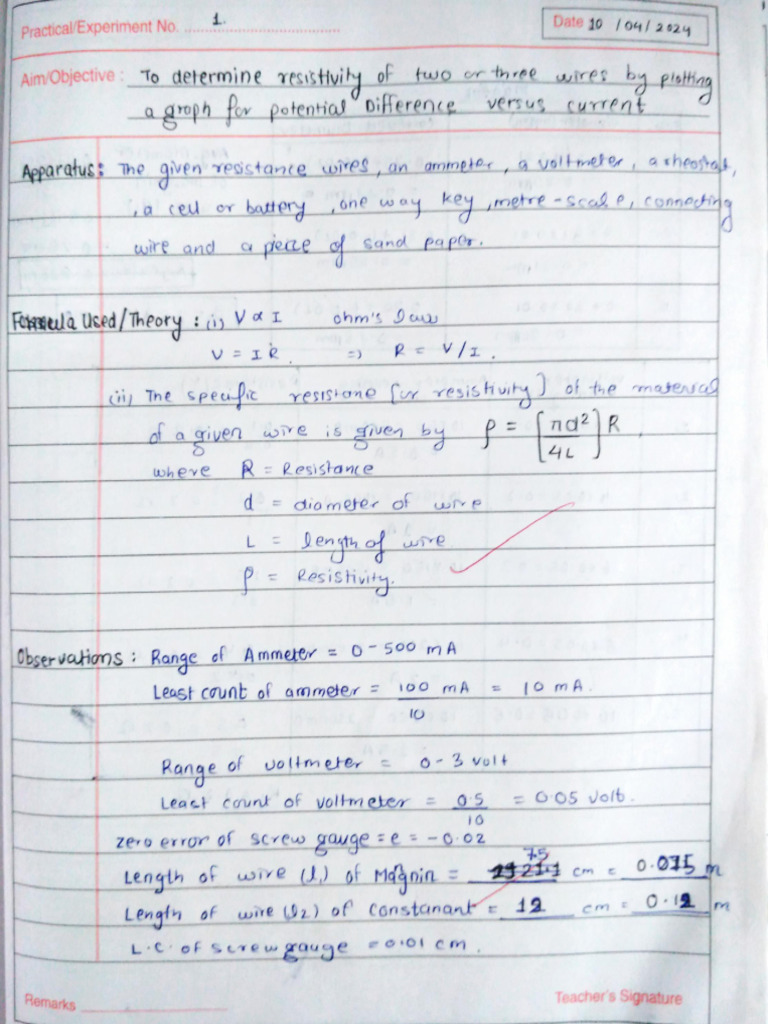 Practical/Experiment No. 1.
Date 10 /04/2024
Aim/Objective : To determine resistivity of two or three wires by plotting
a graph for potential Difference versus current
Apparatus: The given resistance wires, an ammeter, a voltmeter, a rheostat,
, a cell or battery , one way key , metre-scale, connecting
wire and a piece of sand paper.
Formula Used/Theory : (i) V ∝ I ohm's law
V = IR. => R = V/I.
(ii) The specific resistane [or resistivity] of the material
of a given wire is given by ρ = [πd²/4L] R.
where R = Resistance
d = diameter of wire
L = length of wire
ρ = Resistivity.
Observations : Range of Ammeter = 0-500 mA
Least count of ammeter = 100 mA/10 = 10 mA.
Range of voltmeter = 0-3 volt
Least count of voltmeter = 0.5/10 = 0.05 volt.
zero error of screw gauge = e = -0.02
Length of wire (l₁) of Magnin = 75 cm = 0.075 m
Length of wire (l2) of constanant = 12 cm = 0.12 m
L.C. of screw gauge = 0.01 cm.
Remarks
Teacher's Signature